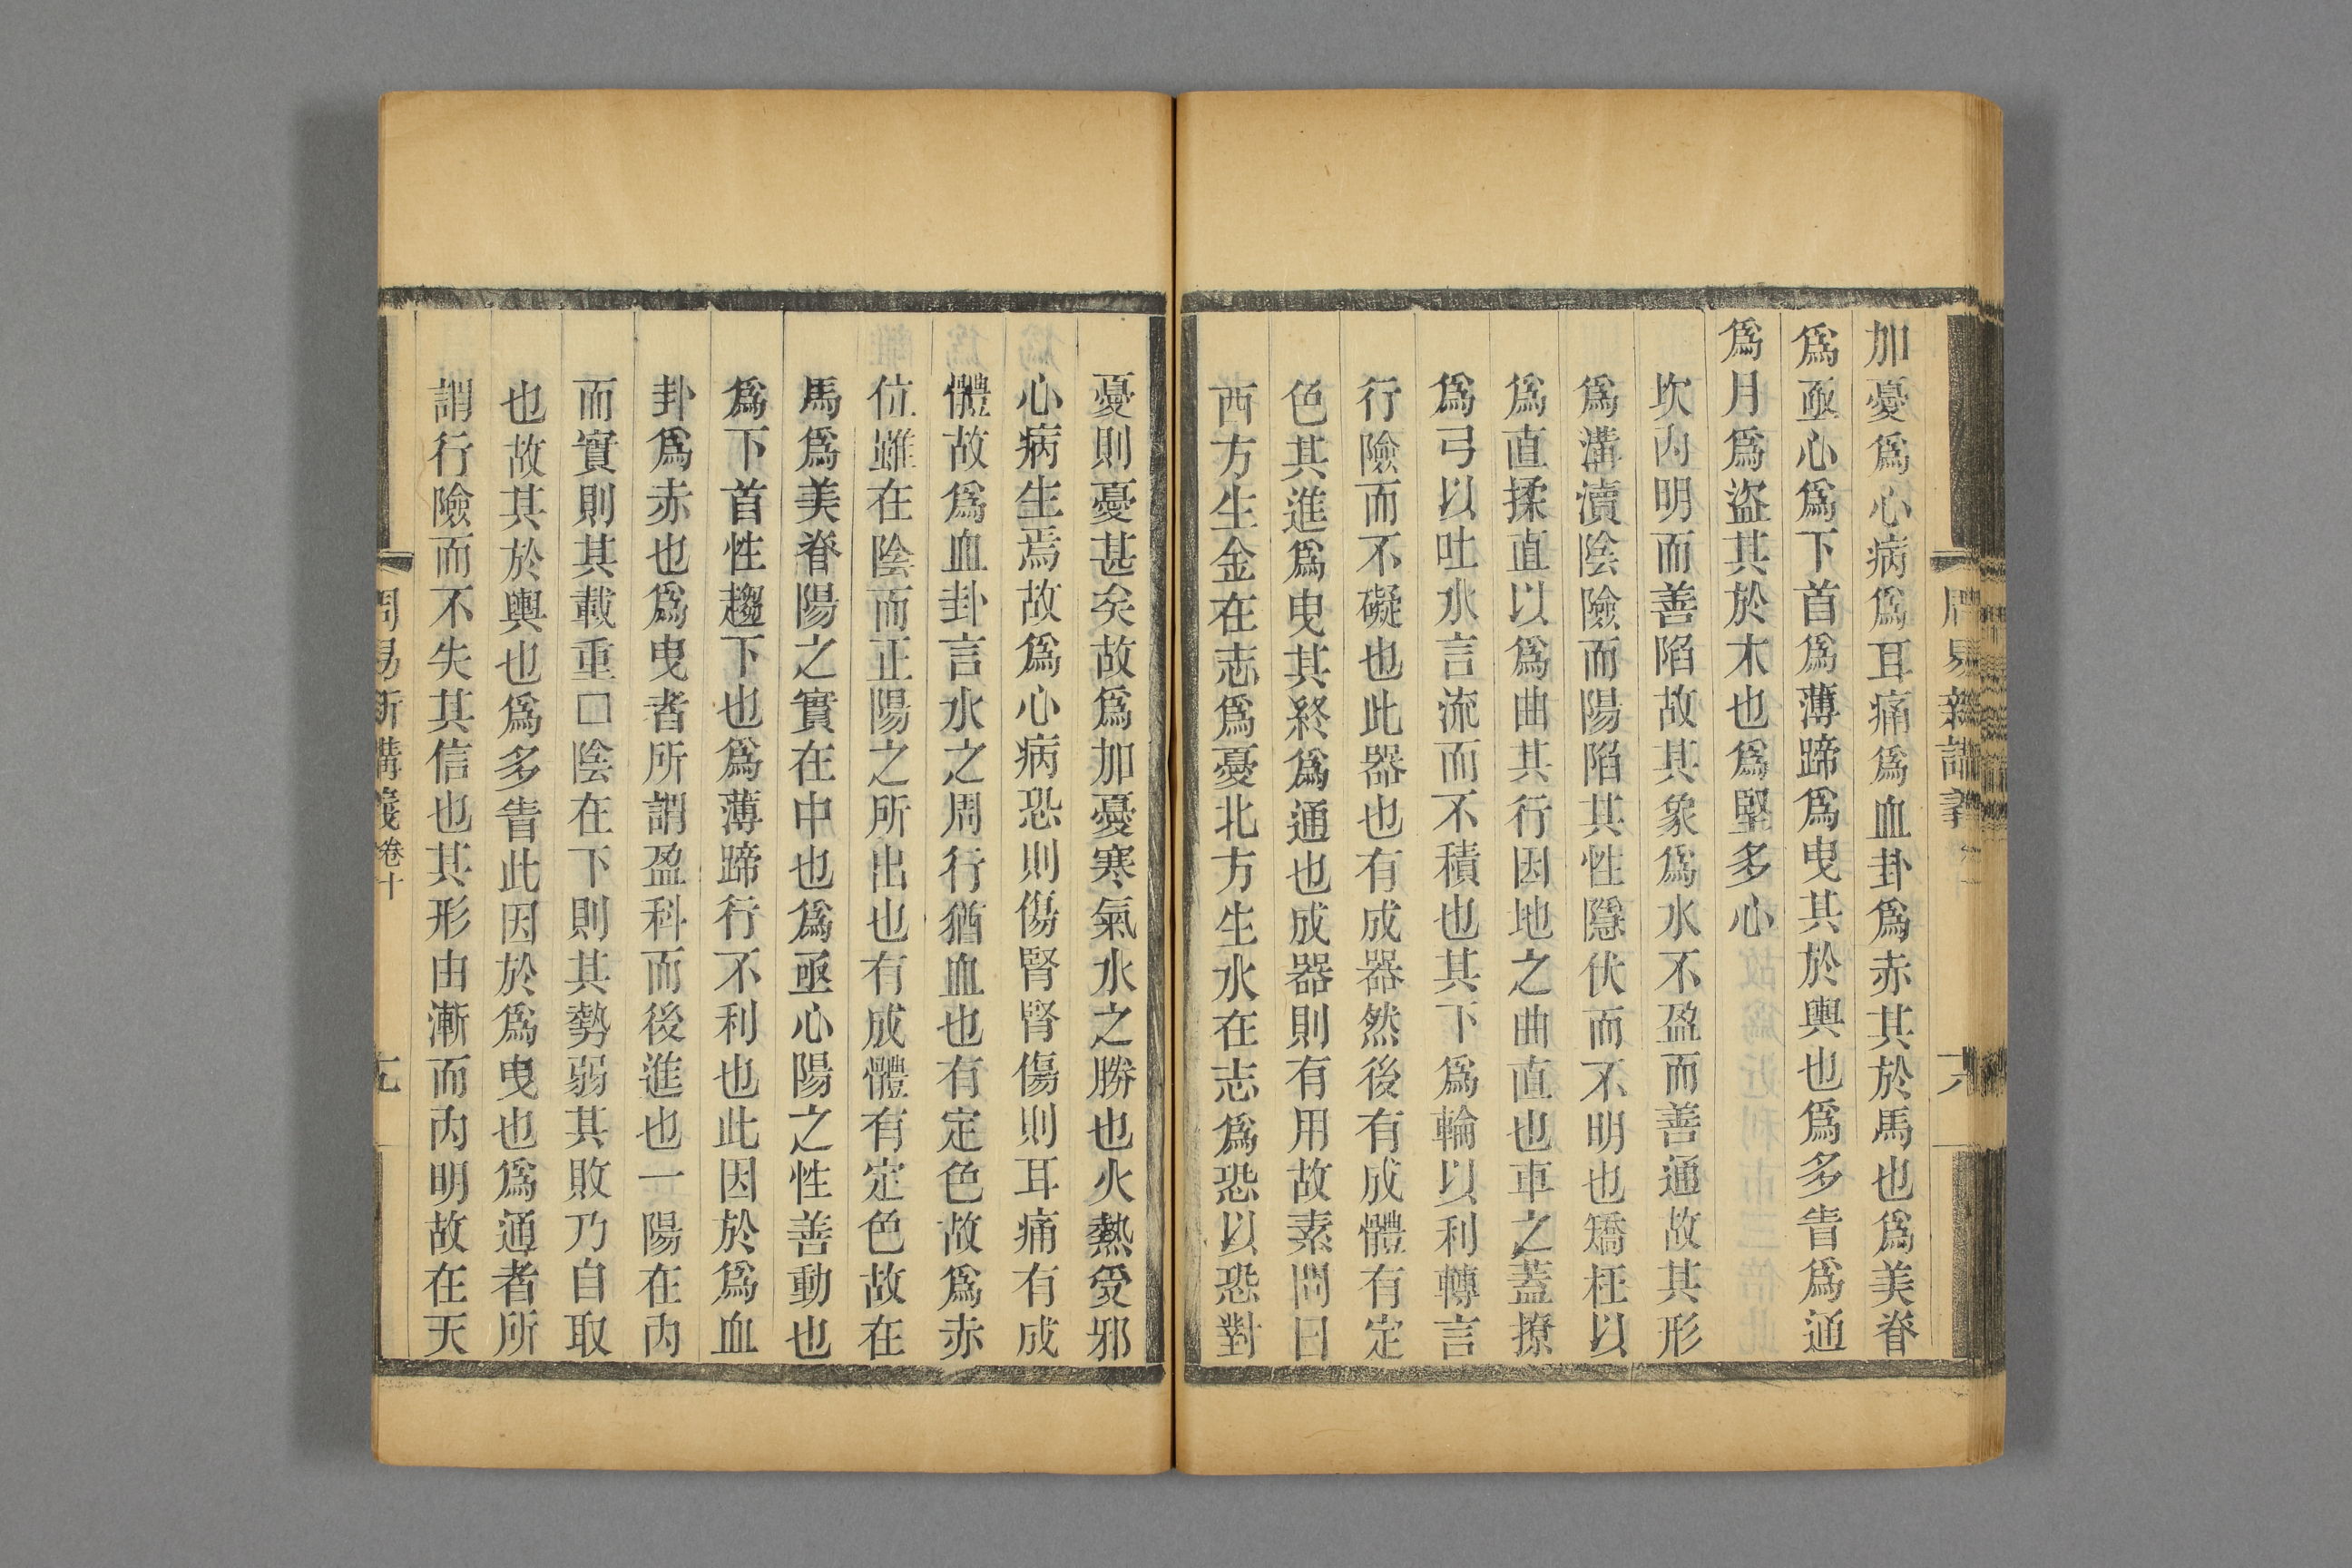 加憂爲心病爲耳痛爲血卦爲赤其於馬也爲美脊
爲亟心爲下首爲薄蹄爲曳其於輿也爲多眚爲通
爲月爲盜其於木也爲堅多心
坎內明而善陷故其象爲水不盈而善通故其形
爲溝瀆陰險而陽陷其性隱伏而不明也矯枉以
爲直揉直以爲曲其行因地之曲直也車之蓋撩
爲弓以吐水言流而不積也其下爲輪以利轉言
行險而不礙也此器也有成器然後有成體有定
色其進爲曳其終爲通也成器則有用故素問曰
西方生金在志爲憂北方生水在志爲恐以恐對
憂則憂甚矣故爲加憂寒氣水之勝也火熱受邪
心病生焉故爲心病恐則傷腎腎傷則耳痛有成
體故爲血卦言水之周行猶血也有定色故爲赤
位雖在陰而正陽之所出也有成體有定色故在
馬爲美脊陽之實在中也爲亟心陽之性善動也
爲下首性趨下也爲薄蹄行不利也此因於爲血
卦爲赤也爲曳者所謂盈科而後進也一陽在內
而實則其載重□陰在下則其勢弱其敗乃自取
也故其於輿也爲多眚此因於爲曳也爲通者所
謂行險而不失其信也其形由漸而內明故在天
周易新講義卷十